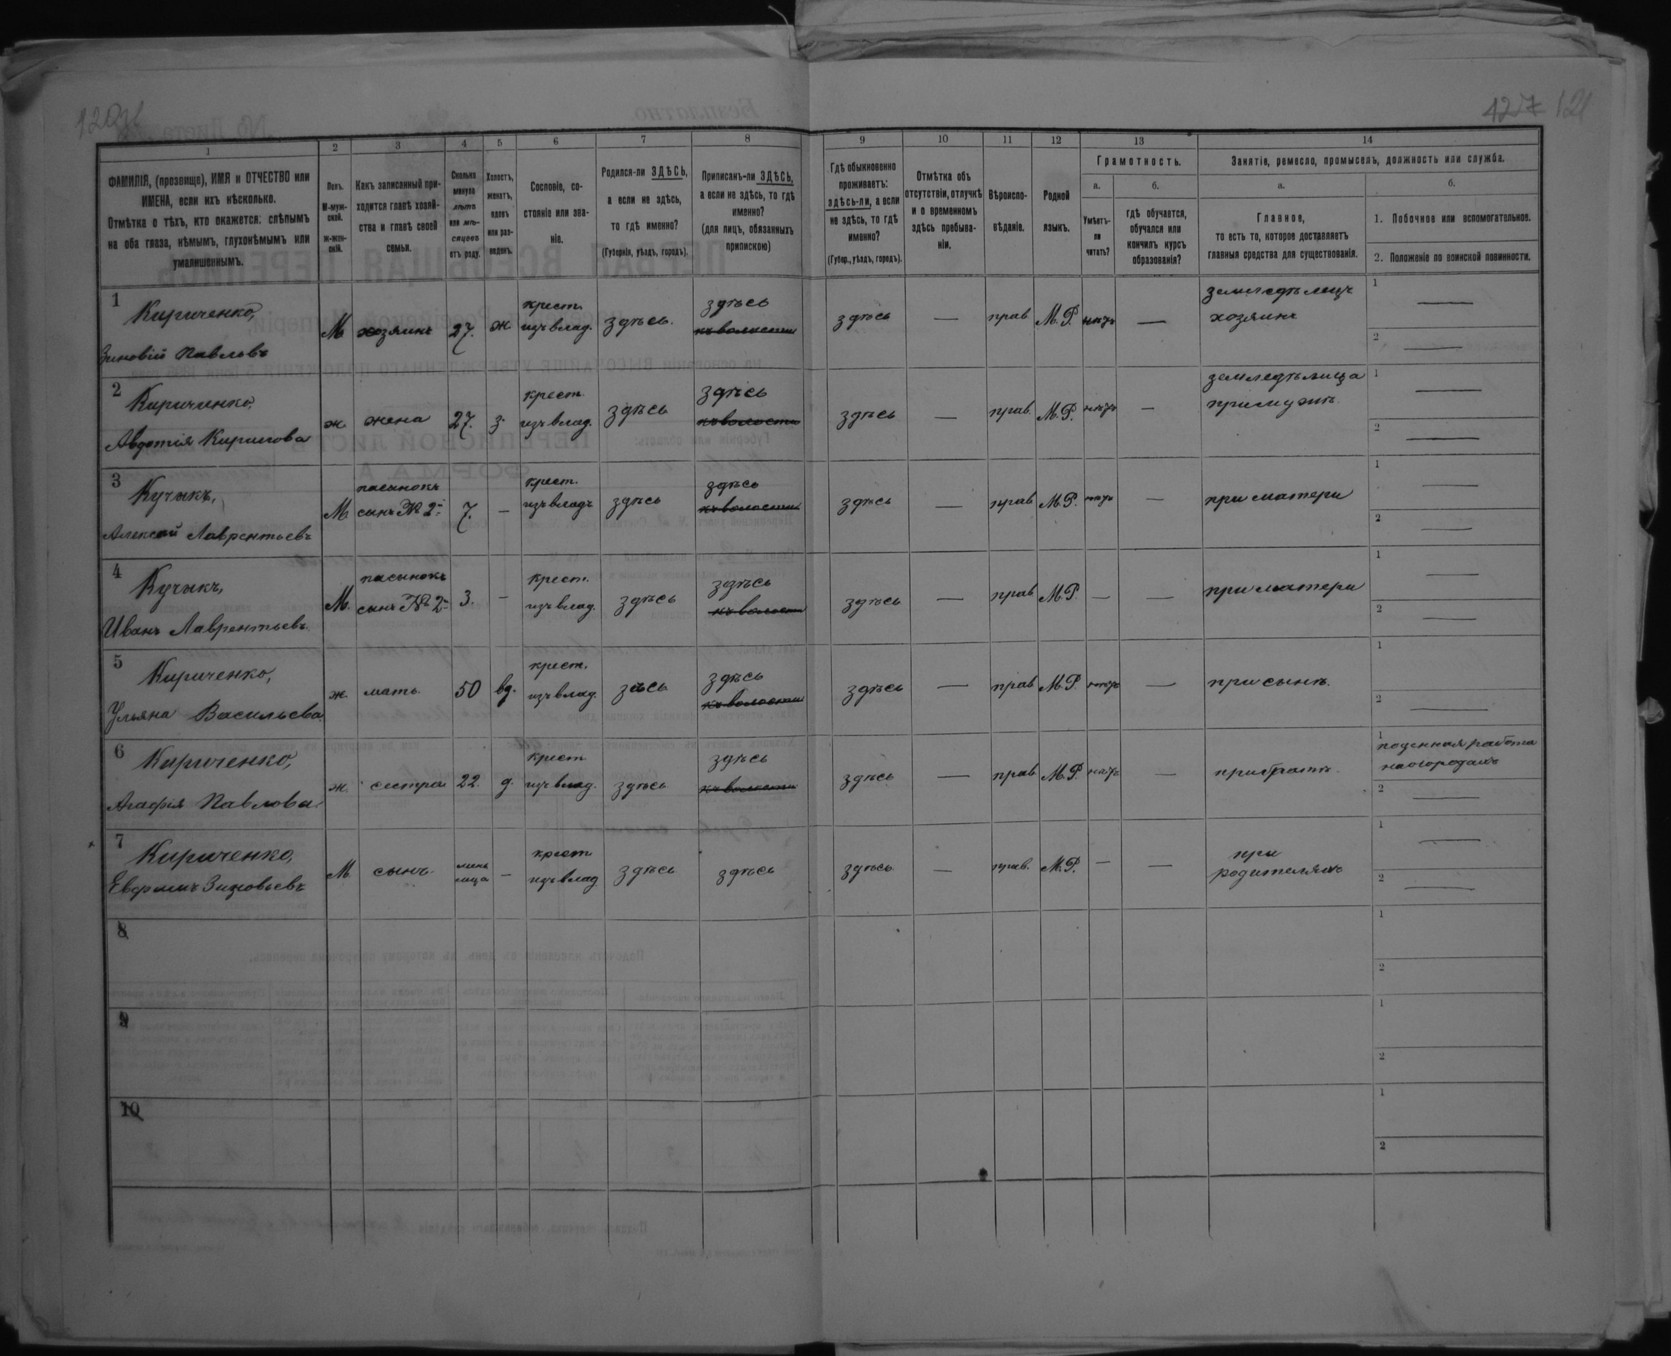 121
1
2
3
4
5
6
7
8
9
10
11
12
13
14
ФАМИЛІЯ, (прозвище), ИМЯ и ОТЧЕСТВО или
ИМЕНА, если ихъ нѣсколько.
Отмѣтка о тѣхъ, кто окажется: слѣпымъ
на оба глаза, нѣмымъ, глухонѣмымъ или
умалишеннымъ.
Полъ.
М-муж-
ской.
ж-жен-
скій.
Какъ записанный при-
ходится главѣ хозяй-
ства и главѣ своей
семьи.
Сколько
минуло
лѣтъ
или мѣ-
сяцевъ
отъ роду.
Холостъ,
женатъ,
вдовъ
или раз-
веденъ.
Сословіе, со-
стояніе или зва-
ніе.
Родился-ли ЗДѢСЬ,
а если не здѣсь,
то гдѣ именно?
(Губернія, уѣздъ, городъ).
Приписанъ-ли ЗДѢСЬ,
а если не здѣсь, то гдѣ
именно?
(для лицъ, обязанныхъ
припискою)
Гдѣ обыкновенно
проживаетъ:
здѣсь-ли, а если
не здѣсь, то гдѣ
именно?
(Губер., уѣздъ, городъ).
Отмѣтка объ
отсутствіи, отлучкѣ
и о временномъ
здѣсь пребыва-
ніи.
Вѣроиспо-
вѣданіе.
Родной
языкъ.
Грамотность.
а.
Умѣетъ-
ли
читать?
б.
гдѣ обучается,
обучался или
кончилъ курсъ
образованія?
Занятіе, ремесло, промыселъ, должность или служба.
а.
Главное,
то есть то, которое доставляетъ
главныя средства для существованія.
б.
1. Побочное или вспомогательное.
2. Положеніе по воинской повинности.
1
Кириченко,
Зиновій Павловъ
М
хозяинъ
27.
ж
крест.
изъ влад.
здѣсь.
здѣсь
къ волости
здѣсь
—
прав
М.Р.
нѣтъ
—
земледѣлецъ
хозяинъ
1 —
2 —
2
Кириченко,
Авдотія Кирилова
ж
жена
27.
з.
крест.
изъ влад.
здѣсь
здѣсь
къ волости
здѣсь
—
прав.
М.Р.
нѣтъ
—
земледѣлица
при мужѣ.
1 —
2 —
3
Кучукъ,
Алексѣй Лаврентьевъ
М.
пасынокъ
сынъ № 2-
7.
—
крест.
изъ владъ
здѣсь
здѣсь
къ волости
здѣсь
—
прав
М.Р.
нѣтъ
—
при матери
1 —
2 —
4
Кучукъ,
Иванъ Лаврентьевъ
М.
пасынокъ
сынъ № 2-
3.
—
крест.
изъ влад.
здѣсь
здѣсь
къ волости
здѣсь
—
прав
М.Р.
—
—
при матери
1 —
2 —
5
Кириченко,
Ульяна Васильева
ж.
мать
50
вд.
крест.
изъ влад.
здѣсь
здѣсь
къ волости
здѣсь
—
прав
М.Р.
нѣтъ
—
при сынѣ.
1
2 —
6
Кириченко,
Агафія Павлова.
ж.
сестра
22.
д.
крест
изъ влад.
здѣсь
здѣсь
къ волости
здѣсь
—
прав.
М.Р.
нѣтъ
—
при братѣ.
1 поденная работа
на огородахъ
2 —
7
Кириченко,
Зиновьевъ
М
сынъ.
—
крест
изъ влад
здѣсь
здѣсь
здѣсь
—
прав.
М.Р.
—
—
при
родителяхъ
1 —
2 —
8
1
2
9
1
2
10
1
2